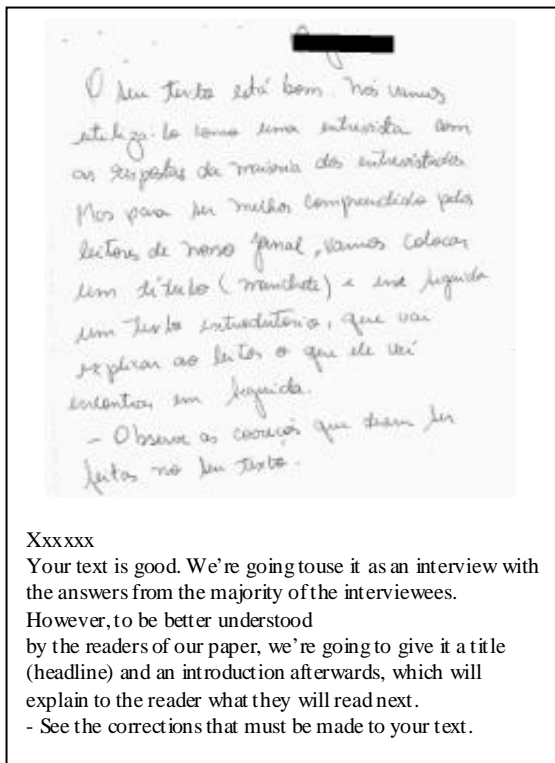 O seu texto está bom. Nós vamos
utiliza-lo como uma entrevista com
as respostas da maioria dos entrevistados
Mas para ser melhor compreendido pelos
leitores de nosso jornal, vamos colocar
um título (manchete) e em seguida
um texto introdutório, que vai
explicar ao leitor o que ele vai
encontrar em seguida.
- Observe as correções que devem ser
feitas no seu texto.
Xxxxxx
Your text is good. We're going touse it as an interview with
the answers from the majority of the interviewees.
However, to be better understood
by the readers of our paper, we're going to give it a title
(headline) and an introduction afterwards, which will
explain to the reader what they will read next.
- See the corrections that must be made to your text.